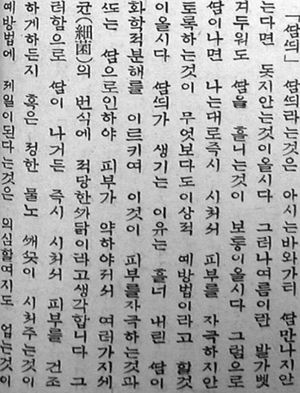 「ᄯᅡᆷᄯᅴ」 ᄯᅡᆷᄯᅴ라는것은 아시는바와가티 ᄯᅡᆷ만나지안
는다면 돗지안는것이올시다 그러나여름이란 발가벳
겨두워도 ᄯᅡᆷ을 흘니는것이 보통이올시다 그럼으로
ᄯᅡᆷ이나면 나는대로즉시 시처서 피부를 자극하지안
토록하는것이 무엇보다도이상적 예방법이라고 할것
이올시다 ᄯᅡᆷᄯᅴ가 생기는 이유는 흘너 내린 ᄯᅡᆷ이
화학적분해를 이르키여 이것이 피부를자극하는것과
ᄯᅩ는 ᄯᅡᆷ으로인하야 피부가 약하야저서 여러가지세
균(細菌)의 번식에 적당한ᄭᅡ닭이라고생각합니다 그
러함으로 ᄯᅡᆷ이 나거든 즉시 시처서 피부를 건조
하게하든지 혹은 정한 물노 ᄭᅢᄭᅳᆺ이 시처주는것이
예방법에 제일이된다는것은 의심할여지도 업는것이